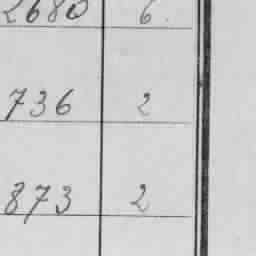 2680 6
736 2
873 2